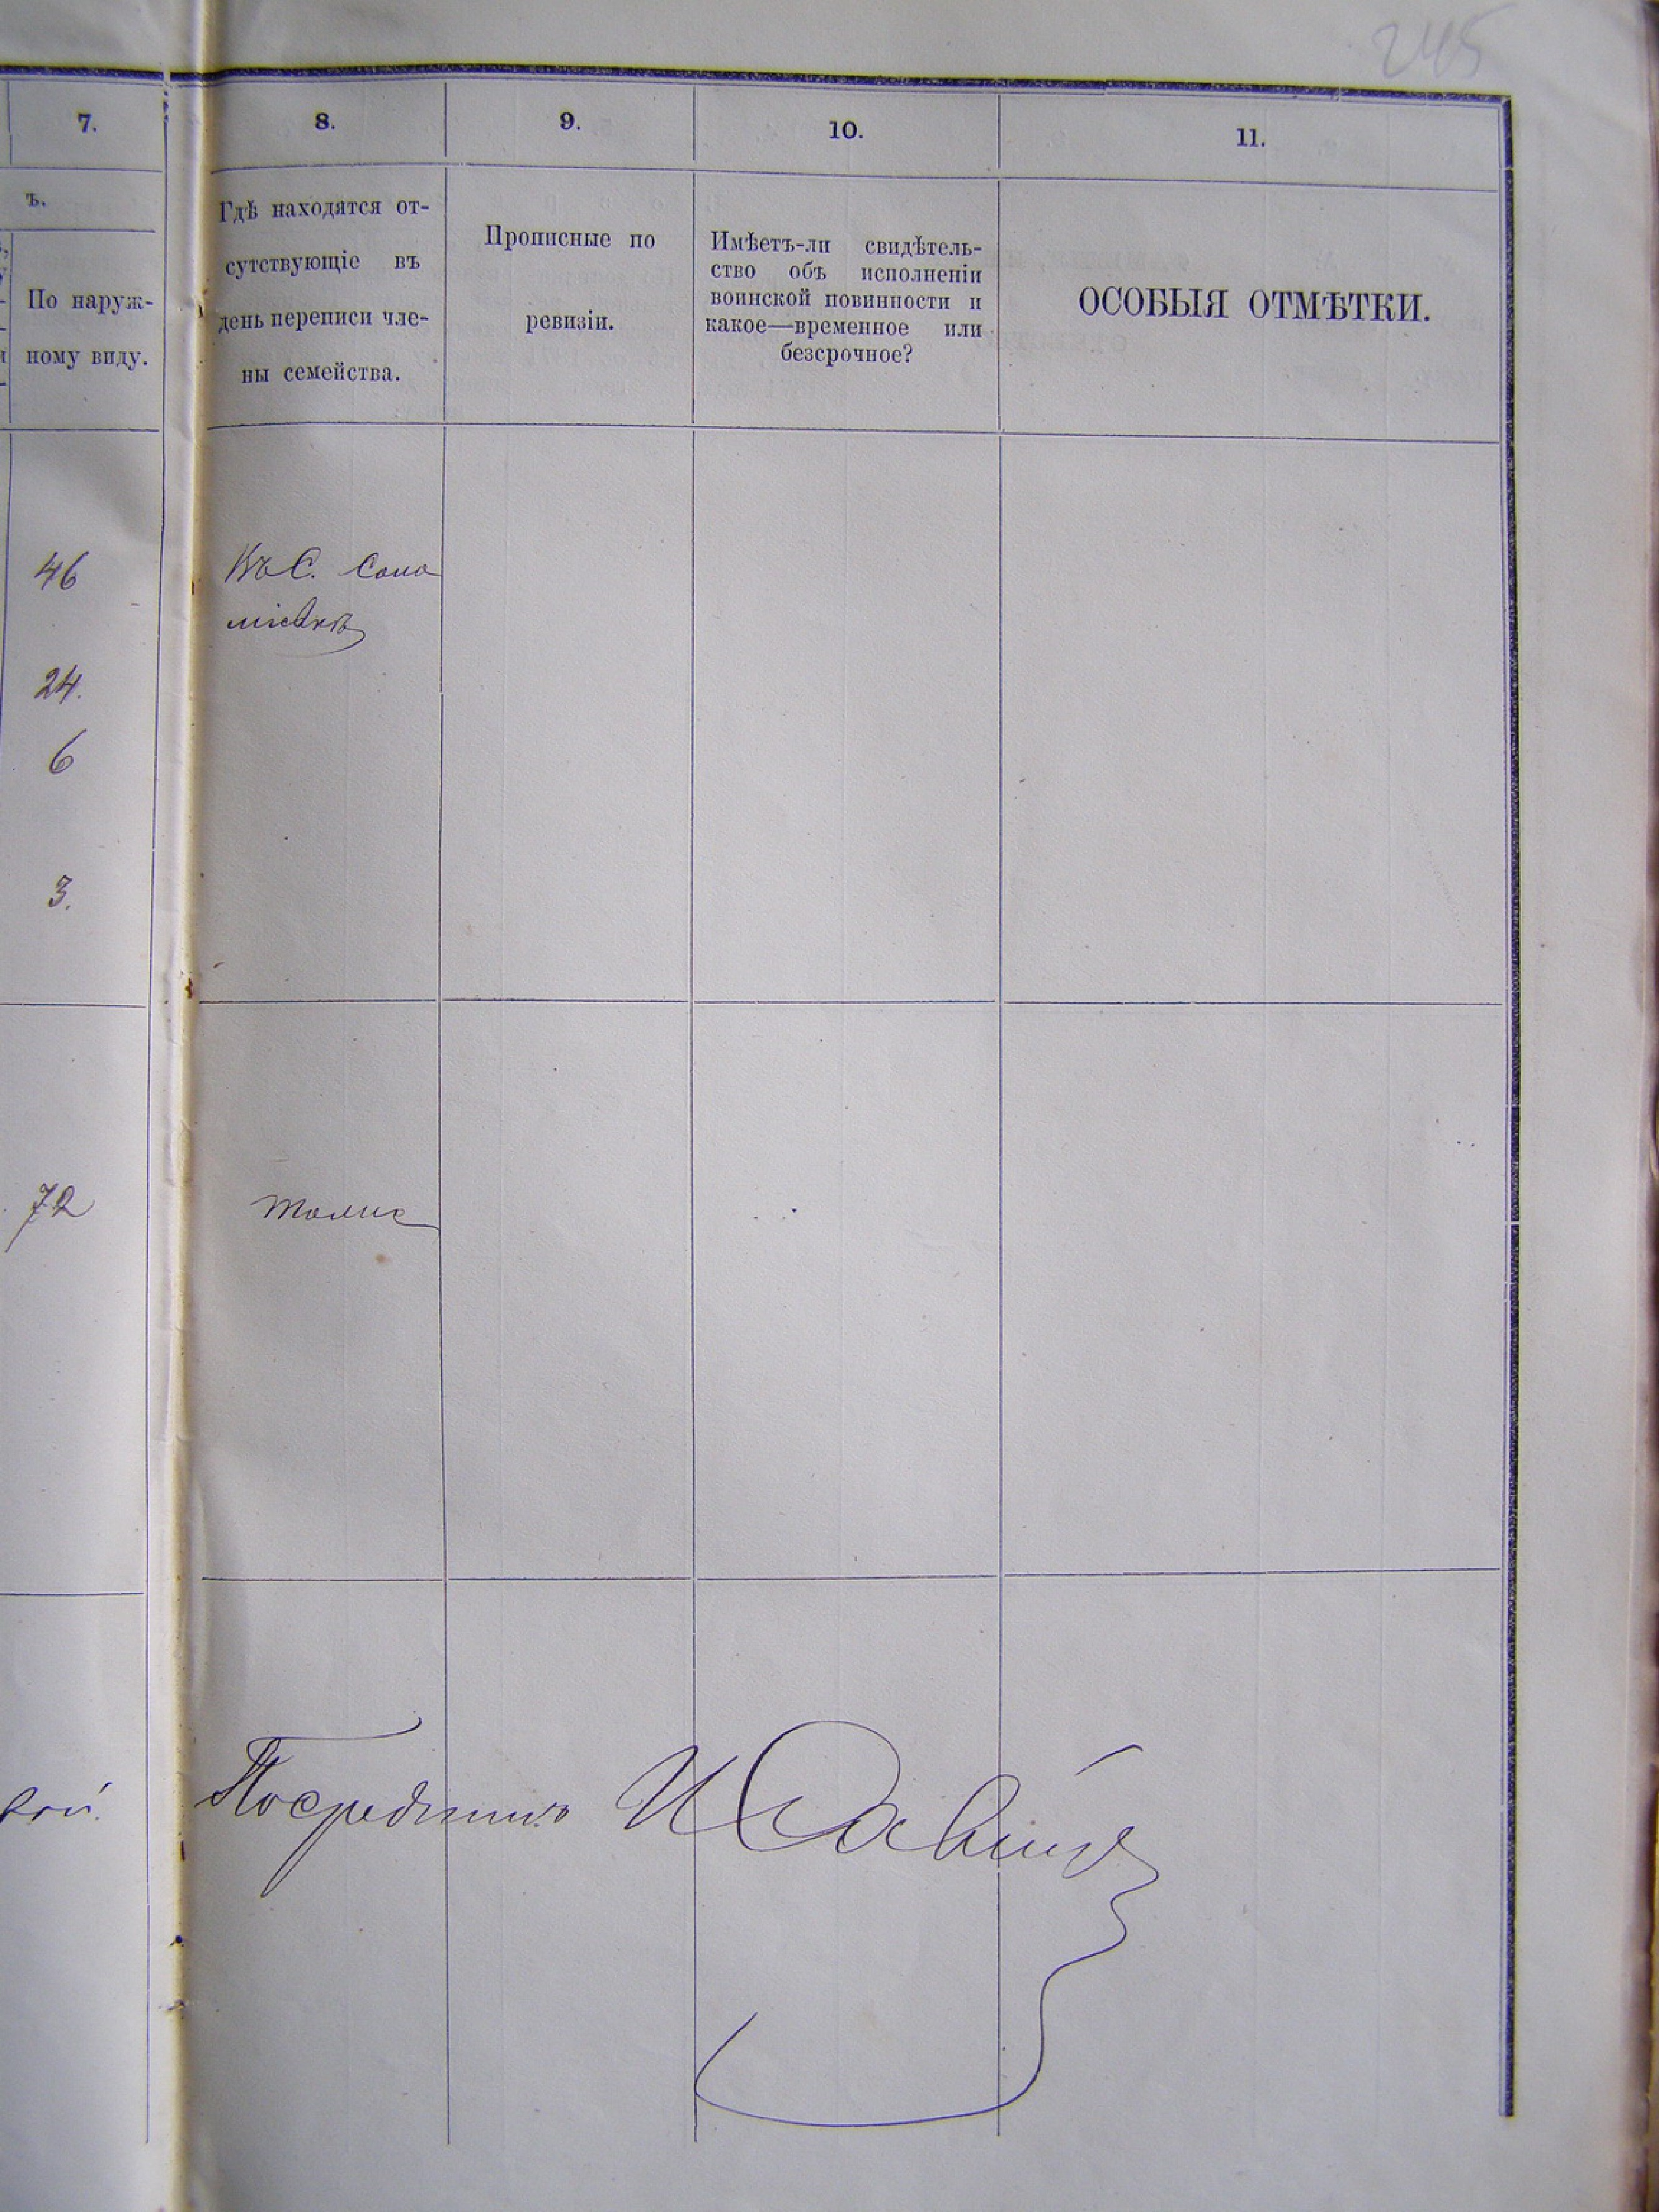 245
7.
8.
9.
10.
11.
ъ.
По наруж-
ному виду.
Гдѣ находятся от-
сутствующіе въ
день переписи чле-
ны семейства.
Прописные по
ревизіи.
Имѣетъ-ли свидѣтель-
ство объ исполненіи
воинской повинности и
какое—временное или
безсрочное?
ОСОБЫЯ ОТМѢТКИ.
46
Въ С.
24.
6
3.
72
Посредникъ